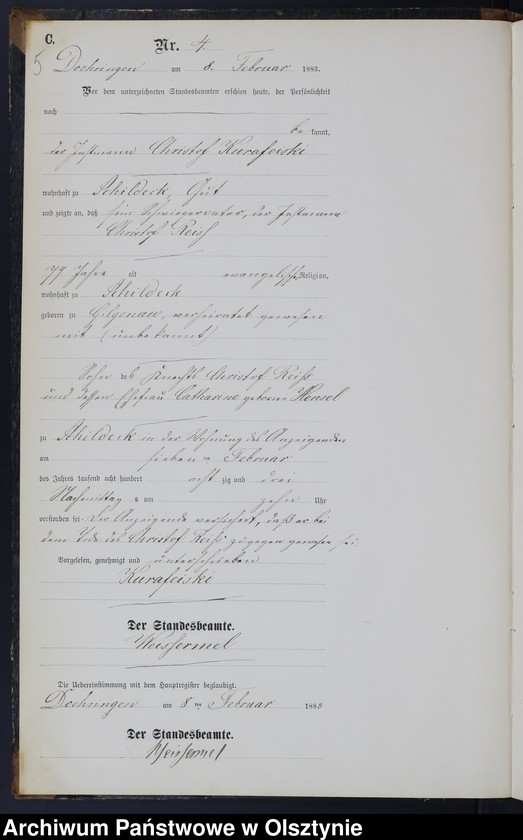 C.
Nr. 4.
5
Doehringen am 8. Februar 1883.
Vor dem unterzeichneten Standesbeamten erschien heute, der Persönlichkeit
nach
be kannt,
der Instmann Christof Kurafeiski
wohnhaft zu Schildeck, Gut
und zeigte an, daß sein Schwiegervater, der Instmann
Christof Reiß
77 Jahre alt evangelischer Religion,
wohnhaft zu Schildeck
geboren zu Gilgenau, verheiratet gewesen
mit (unbekannt)
Sohn des Knechts Christof Reiß
und dessen Ehefrau Catharine geborne Hensel
zu Schildeck in der Wohnung des Anzeigenden
am sieben Februar
des Jahres tausend acht hundert acht zig und drei
Nachmittag s um zehn Uhr
verstorben sei. Der Anzeigende versichert, daß er bei
dem Tode des Christof Reiß zugegen gewesen sei
Vorgelesen, genehmigt und unterschrieben
Kurafeiski
Der Standesbeamte.
Weissermel
Die Uebereinstimmung mit dem Hauptregister beglaubigt.
Doehringen am 8 ten Februar 1883
Der Standesbeamte.
Weissermel
Archiwum Państwowe w Olsztynie